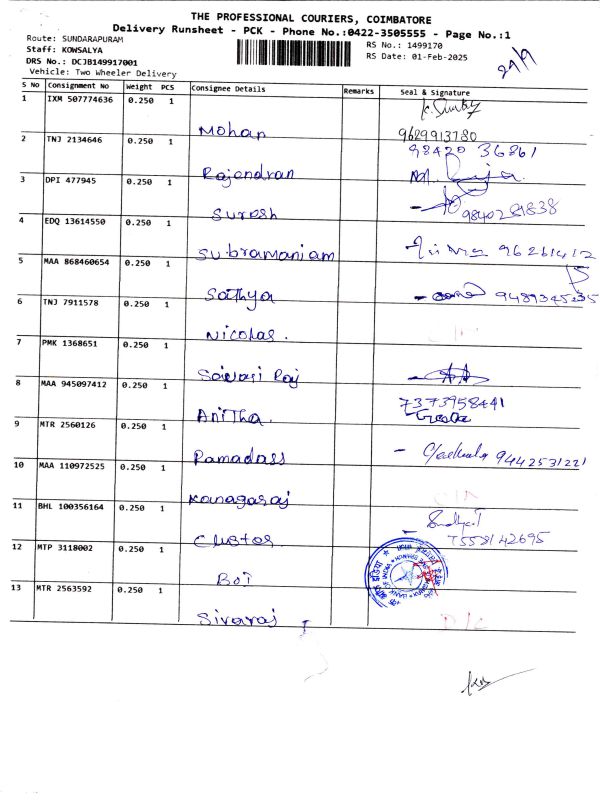 THE PROFESSIONAL COURIERS, COIMBATORE
Delivery Runsheet - PCK - Phone No.:0422-3505555 - Page No.:1
Route: SUNDARAPURAM
RS No.: 1499170
Staff: KOWSALYA
RS Date: 01-Feb-2025
DRS No.: DCJB149917001
Vehicle: Two Wheeler Delivery
S No Consignment No Weight PCS Consignee Details Remarks Seal & Signature
1 IXM 507774636 0.250 1 Mohan 9629913780
2 TNJ 2134646 0.250 1 Rajendran 98420 36861
3 DPI 477945 0.250 1 Suresh 9840289838
4 EDQ 13614550 0.250 1 Subramaniam
5 MAA 868460654 0.250 1 Sathya
6 TNJ 7911578 0.250 1 Nicolas.
7 PMK 1368651 0.250 1
8 MAA 945097412 0.250 1 Anitha. 7373958441
9 MTR 2560126 0.250 1 Ramadass 9442531221
10 MAA 110972525 0.250 1 Kanagaraj
11 BHL 100356164 0.250 1 Custor
12 MTP 3118002 0.250 1 BOI
13 MTR 2563592 0.250 1 Sivaraj D/C